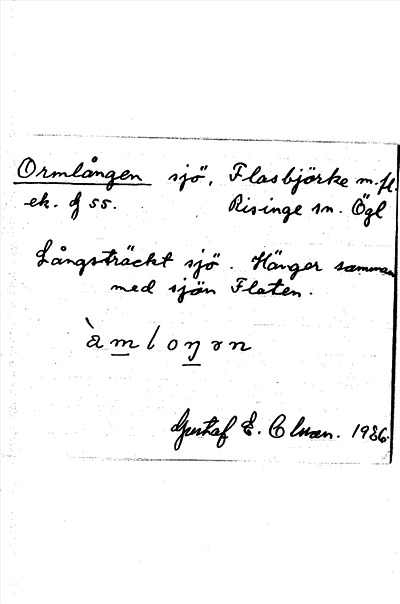 Ormlången sjö, Flasbjörke m.fl.
ek. bl 55. Risinge sn. Ögl
Långsträckt sjö. Hänger samman
med sjön Flaten.
Gustaf E. Olsson. 1936.